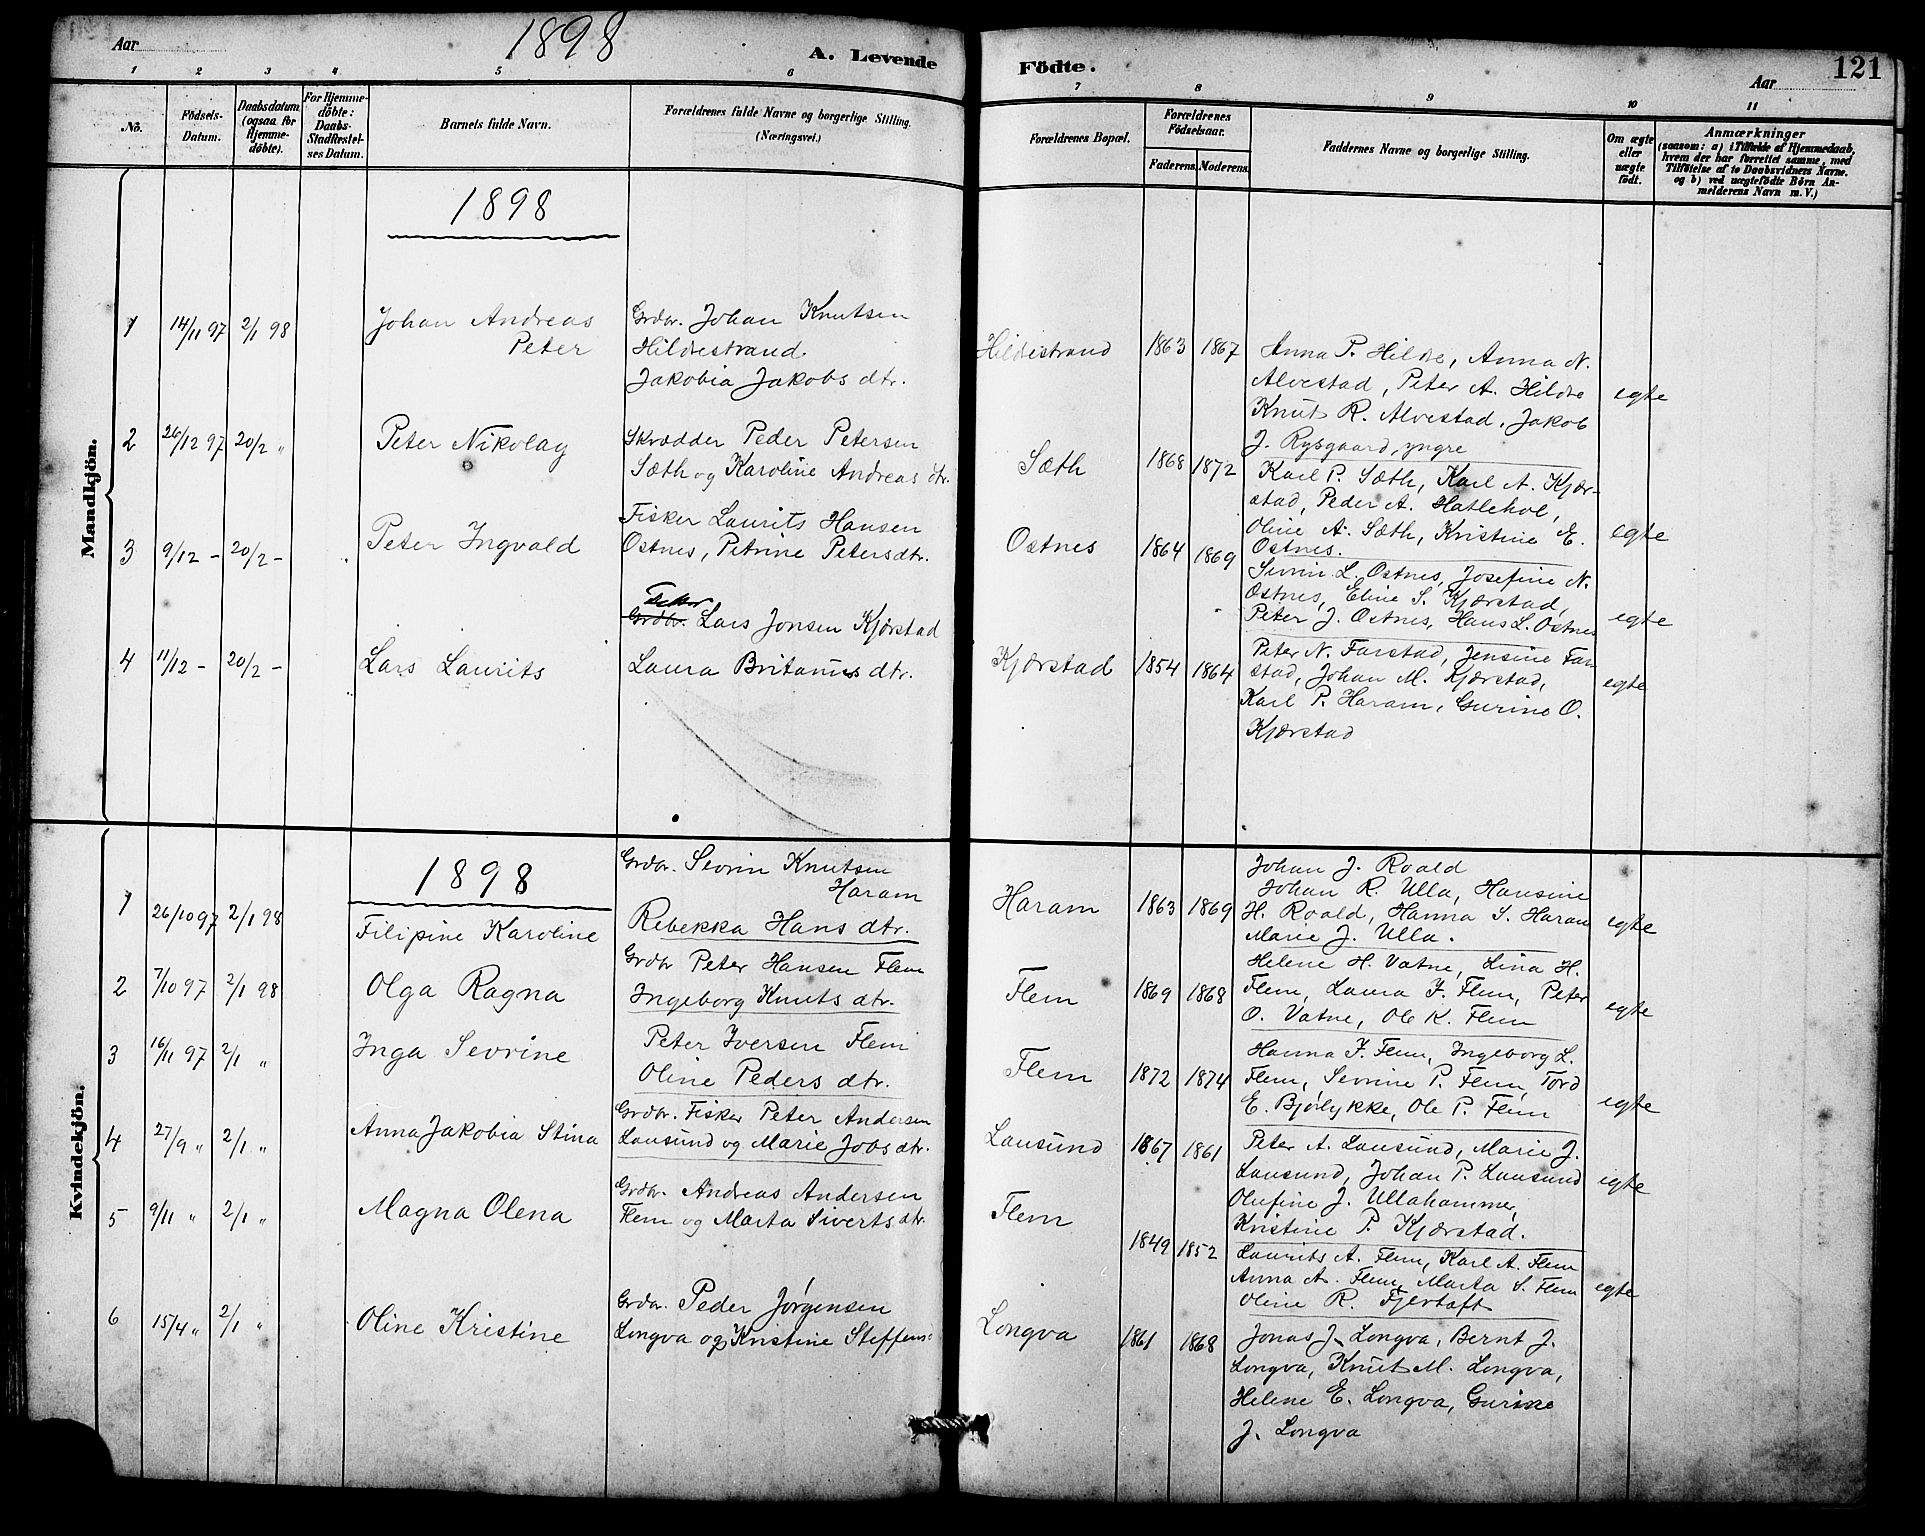 Aar
1898
A. Levende
Födte.
Aar
121
1 2 3 4 5 6 7 8 9 10 11
No.
Födsels-
Datum.
Daabsdatum
(ogsaa for
Hjemme-
döbte).
For Hjemme-
döbte:
Daabs-
Stadfæstel-
ses Datum.
Barnets fulde Navn.
Forældrenes fulde Navne og borgerlige Stilling.
(Næringsvei.)
Forældrenes Bopæl.
Forældrenes
Födselsaar.
Faderens.
Moderens.
Faddernes Navne og borgerlige Stilling.
Om ægte
eller
uægte
födt.
Anmærkninger
(saasom: a) i Tilfælde af Hjemmedaab,
hvem der har forrettet samme, med
Tilföielse af to Daabsvidners Navne.
og b) ved uægtefödte Börn An-
melderens Navn m. V.)
Mandkjön.
1898
1 14/11 97 2/1 98
Johan Andreas
Peter
Grdbr. Johan Knutsen
Hildestrand
Jakobia Jakobs dtr.
Hildestrand 1863 1867
Anna P. Hilde, Anna N.
Alvestad, Peter A. Hilde
Knut R. Alvestad, Jakob
J. Rysgaard, yngre
egte
2 26/12 97 20/2 "
Peter Nikolay
Skrædder Peder Petersen
Sæth og Karoline Andreas dtr.
Sæth 1868 1872
Karl P. Sæth, Karl A. Kjær-
stad, Peder A. Hatlehol,
Oline A. Sæth, Kristine E.
Ostnes.
egte
3 9/12 - 20/2 -
Peter Ingvald
Fisker Laurits Hansen
Ostnes, Petrine Petersdtr.
Ostnes 1864 1869
Sevrin L. Ostnes, Josefine N.
Ostnes, Eline S. Kjærstad,
Peter J. Ostnes, Hans L. Ostnes
egte
4 11/12 - 20/2 -
Lars Laurits
Grdbr. Lars Jonsen Kjørstad
Laura Britanus dtr.
Kjærstad 1854 1864
Peter N. Farstad, Jensine Far-
stad, Johan M. Kjærstad,
Karl P. Haram, Gurine O.
Kjærstad
egte
Kvindekjön.
1898
1 26/10 97 2/1 98
Filipine Karoline
Grdbr. Sevrin Knutsen
Haram
Rebekka Hans dtr.
Haram 1863 1869
Johan J. Roald
Johan R. Ulla, Hansine
H. Roald, Hanna S. Haram
Marie J. Ulla.
egte
2 7/10 97 2/1 98
Olga Ragna
Grdbr Peter Hansen Flem
Ingeborg Knuts dtr.
Flem 1869 1868
Helene H. Vatne, Lina H.
Flem, Laura I. Flem, Peter
O. Vatne, Ole K. Flem
egte
3 16/11 97 2/1 "
Inga Sevrine
Peter Iversen Flem
Oline Peders dtr.
Flem 1872 1874
Hanna I. Flem, Ingeborg L.
Flem, Sevrine P. Flem, Tord
E. Bjørlykke, Ole P. Flem
egte
4 27/9 " 2/1 "
Anna Jakobia Stina
Grdbr. Fisker Peter Andersen
Lausund og Marie Jobs dtr.
Lausund 1867 1861
Peter A. Lausund, Marie J.
Lausund, Johan P. Lausund
Olufine J. Ullahammer,
Kristine P. Kjærstad.
egte
5 9/11 " 2/1 "
Magna Olena
Grdbr. Andreas Andersen
Flem og Marta Siverts dtr.
Flem 1849 1852
Laurits A. Flem, Karl A. Flem
Anna A. Flem, Marta S. Flem
Oline R. Fjertoft
egte
6 15/4 " 2/1 "
Oline Kristine
Grdbr. Peder Jørgensen
Longva og Kristine Steffens-
Longva 1861 1868
Jonas J. Longva, Bernt J.
Longva, Knut M. Longva,
Helene E. Longva, Gurine
J. Longva